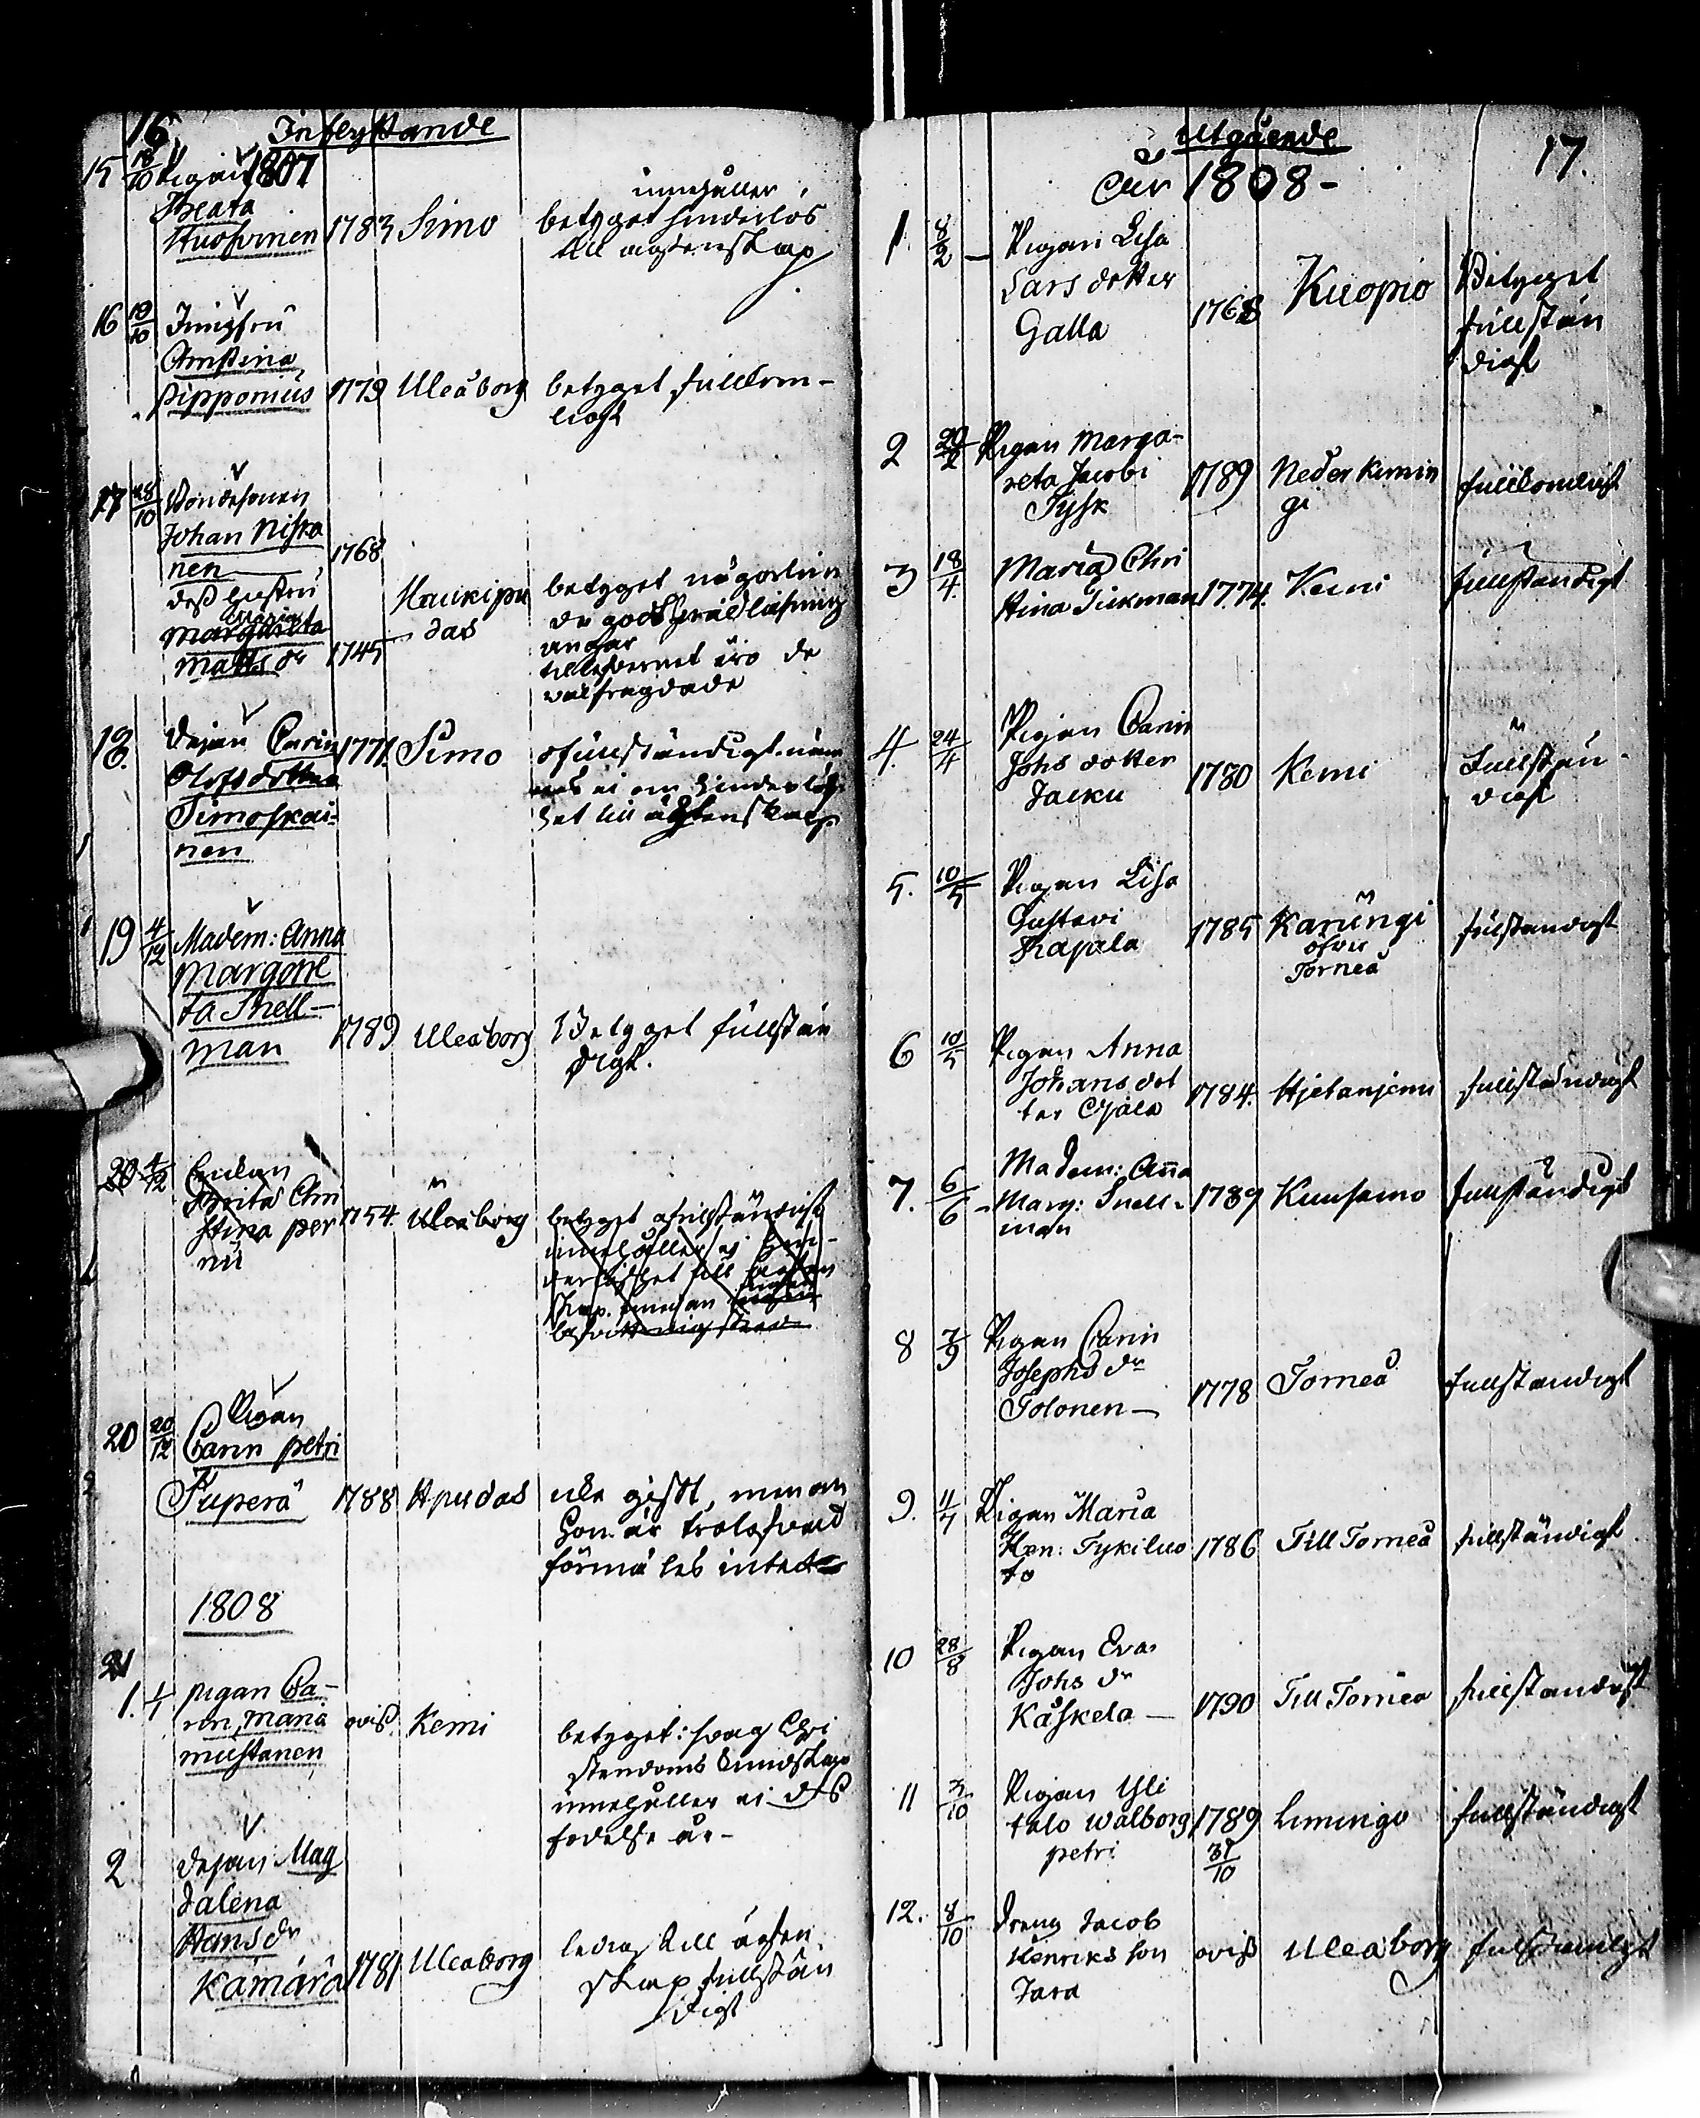 16
Inflyttande
1807
15 18/10 Pigan
Beata
Huosvinen 1783 Simo
innehåller
betyget hinderlös
till ägtenskap
16 19/10 Jungfru
Christina
Pipponius 1779 Uleåborg betyget fullkom-
ligt
17 28/10 Bondesonen
Johan Niska
nen 1768
dess hustru
Maria
Margareta
Matts dr 1745
Haukipu
das
betyget någorlun
da god
angår
äro de
välfrägdade
18. Pigan Carin 1771 Simo ofullständigt näm
nes ei om hinderlös
het till äktenskap
Olofsdotter
Simoskai-
nen
19 4/12 Madem: Anna
Margare
ta Snell-
man 1789 Uleåborg Betyget fullstän
digt.
20 4/12 Enkan
Brita Chri
stina Per
nu 1754 Uleåborg betyget ofullständigt
innehåller ej hin-
derlöshet till ägten
skap
20 20/12 Pigan
Carin Petri
Tuperá 1788 Hpudas icke gift, men om
hon är trolofvad
förmäles intet
1808
21
1. pigan Ca-
rin, Maria
Mustanen oviss Kemi betyget: svag Chri
stendoms kundskap
innehåller ei dess
födelse år-
2 Pigan Mag
dalena
Hans dr
Kamárá 1781 Uleåborg ledig till ägten
skap fullstän
digt
Utgående
17.
år 1808-
1 8/2 Pigan Lisa
Lars dotter
Galla 1768 Kuopio Betyget
fullstän
digt
2 20/2 Pigan Marga-
reta Jacobi
Tysk 1789 Neder Kimin
gi fullkomligt
3 18/4. Maria Chri
stina Tickman 1774. Kemi fullständigt
4. 24/4 Pigan Carin
Johs dotter
Jacku 1780 Kemi Fullstän
digt
5. 10/5 Pigan Lisa
Gustavi
Rapala 1785 Karungi
öfver
Torneå fullständigt
6 10/5 Pigan Anna
Johans dot
ter Ojala 1784. Hjetanjemi fullständigt
7. 6/6 Madem: Aña
Marg: Snell-
man 1789 Kuusamo fullständigt
8 7/9 Pigan Carin
Josephs dr
Tolonen 1778 Torneå fullständigt
9. 11/7 Pigan Maria
Hen: Tykiluo
to 1786 Till Torneå fullständigt
10 28/8 Pigan Eva
Johs dr
Kåskela 1790 Till Torneå fullständigt
11 3/10 Pigan Yli
talo Walborg
petri 1789
31/10 Limingo fullständigt
12. 8/10 Dreng Jacob
Henriks son
Jara oviss Uleåborg fullständigt